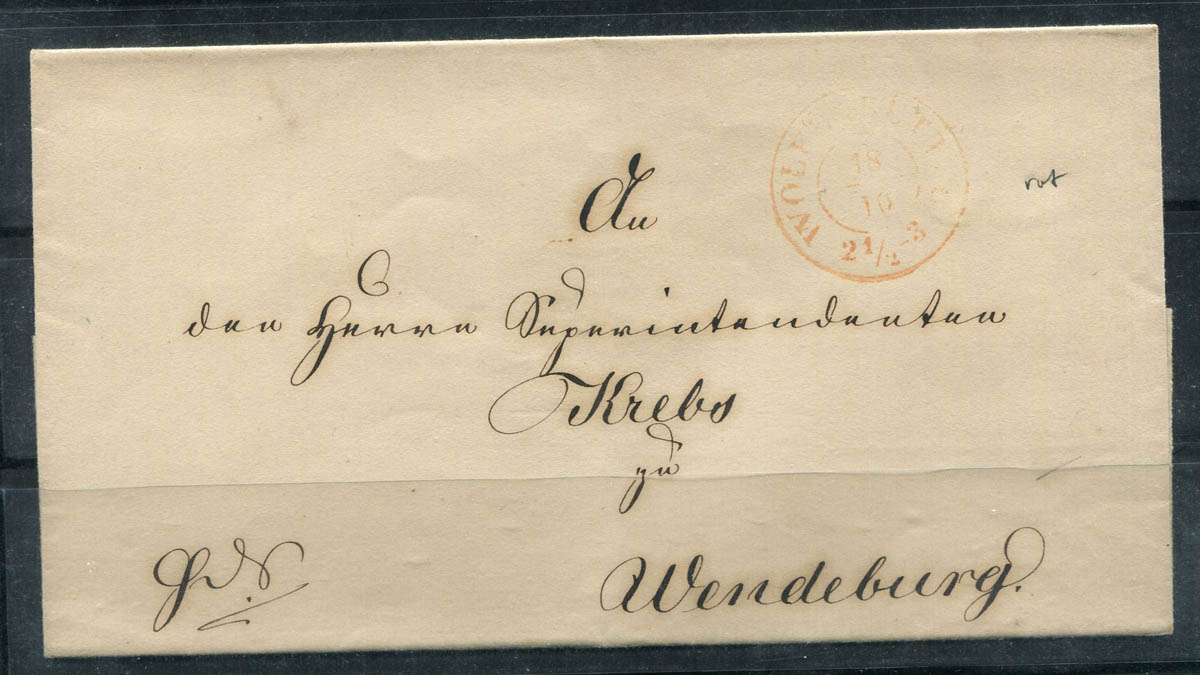 WOLFENBÜTTEL
18
10
2 1/2-3
rot
An
den Herrn Superintendenten
Krebs
zu
Wendeburg.